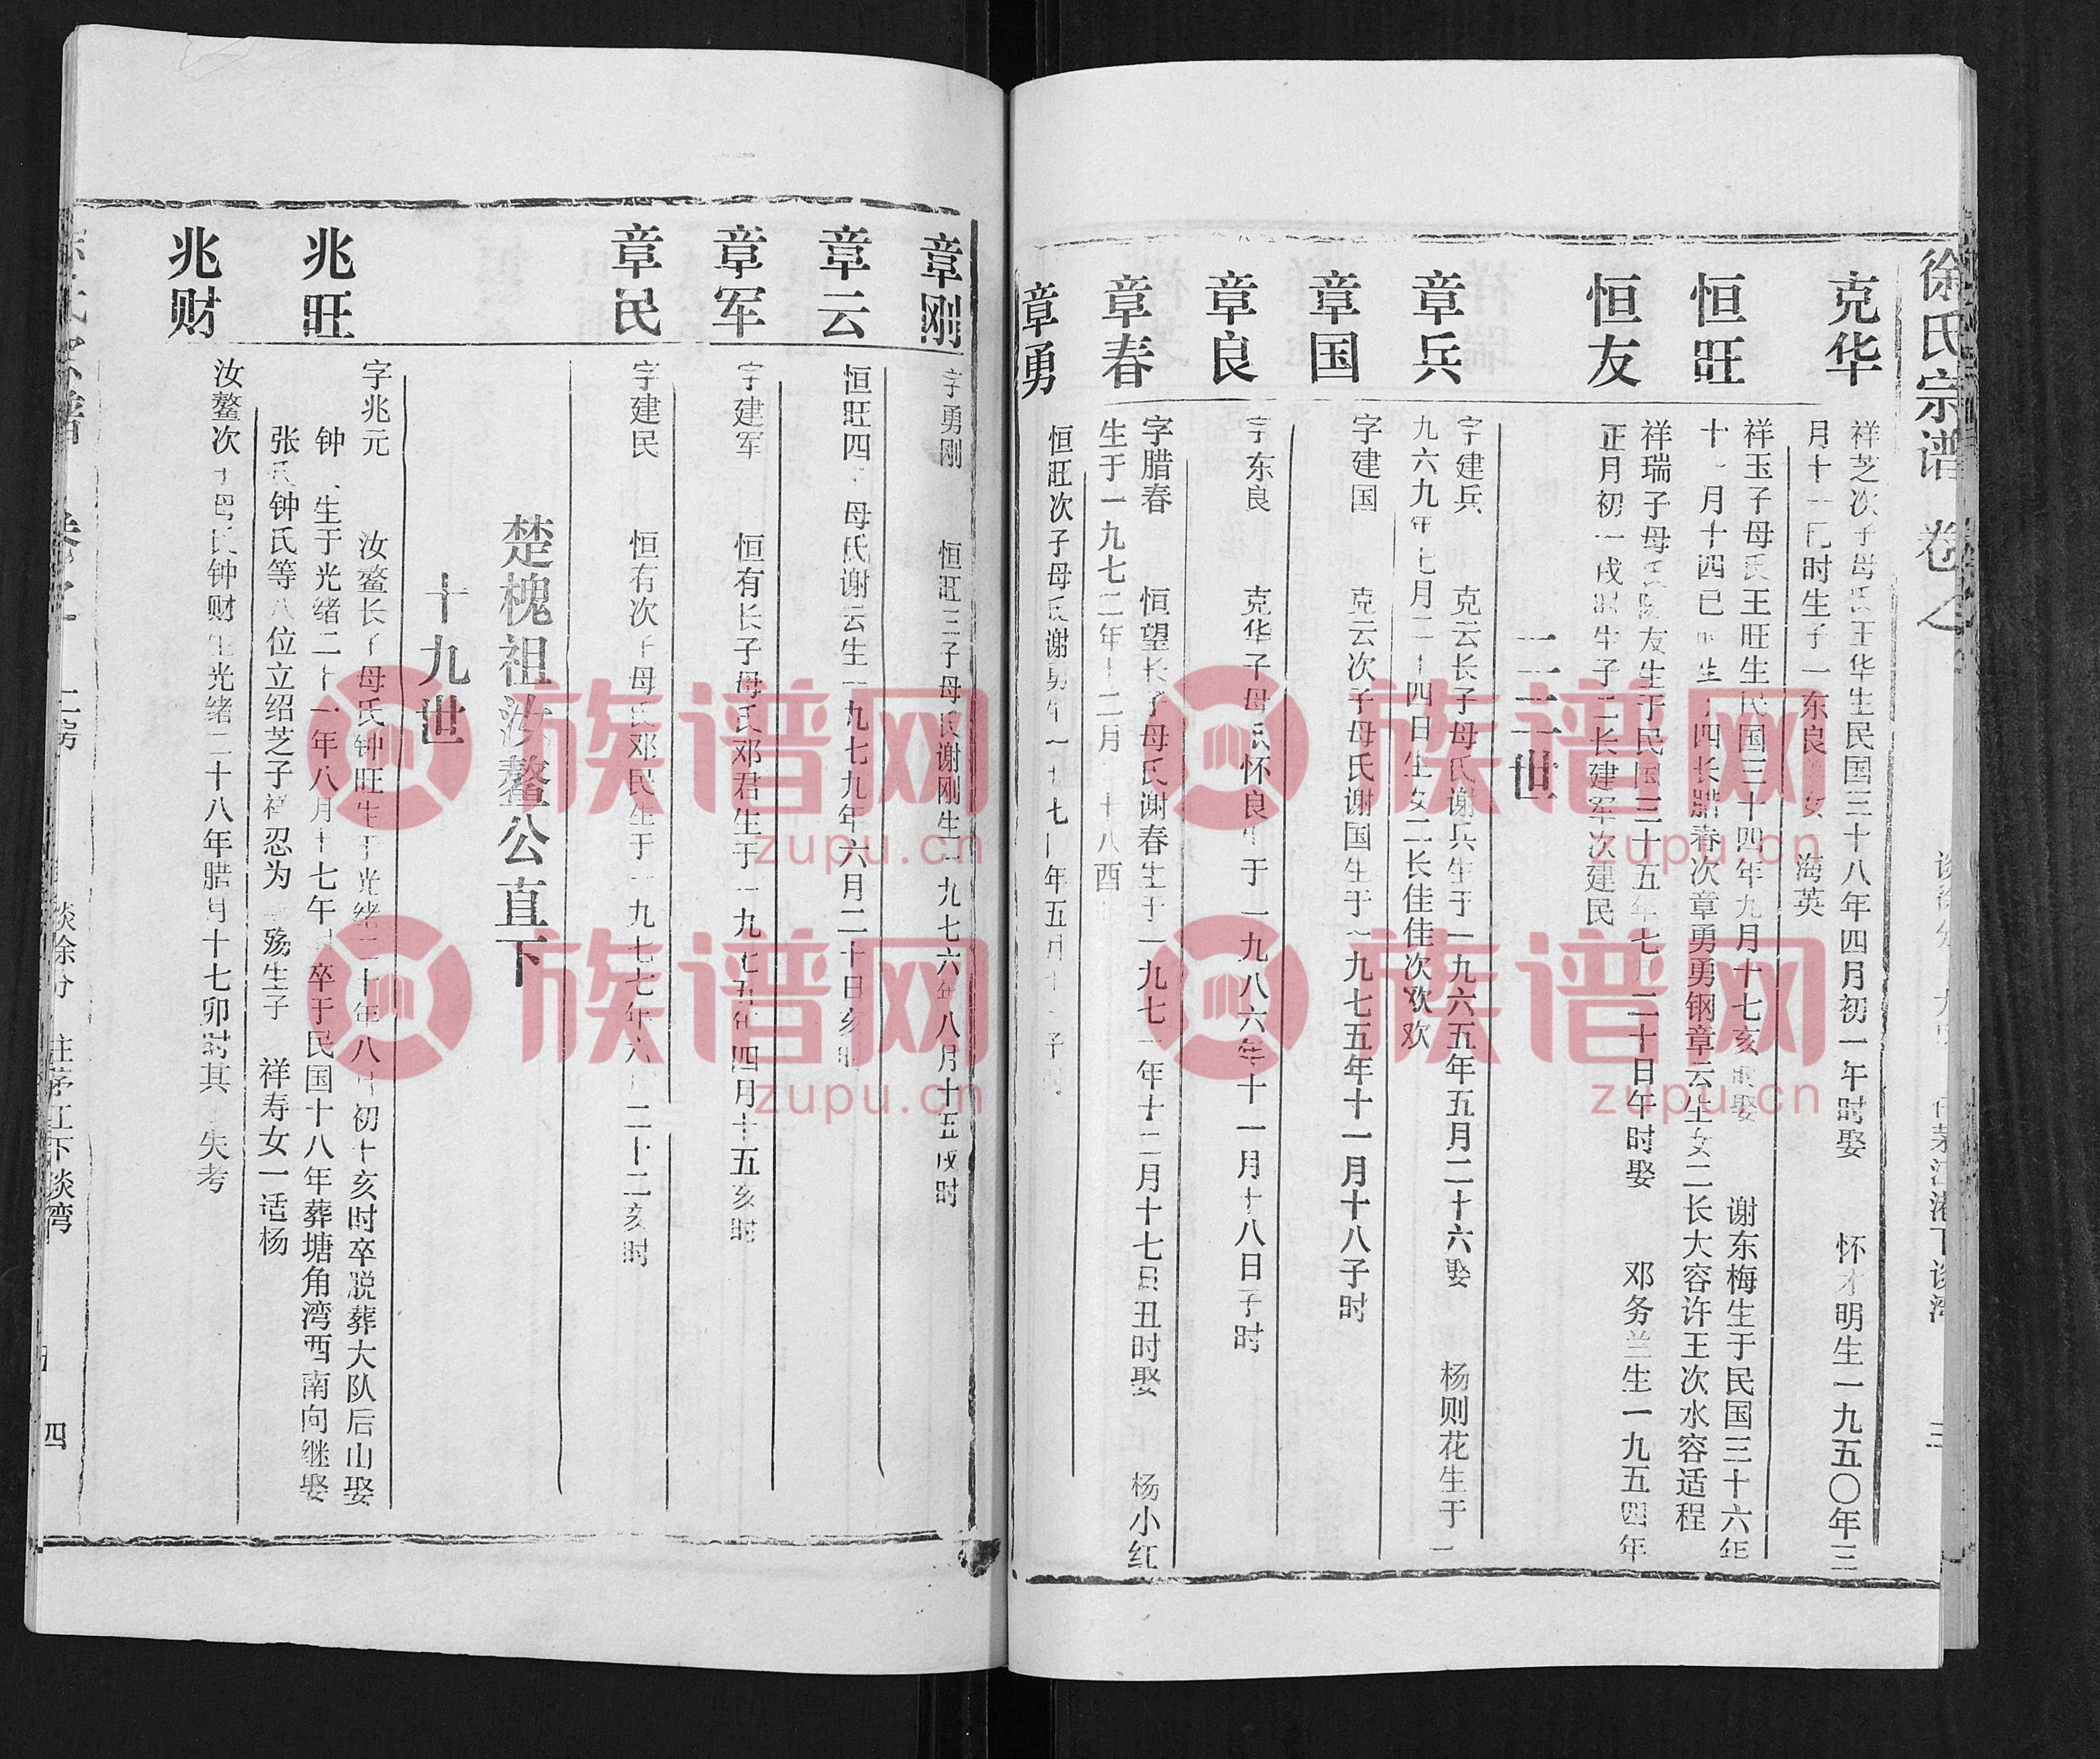 徐氏宗谱 卷之
克华
祥芝次子母氏王华生民国三十八年四月初一午时娶 怀 明生一九五〇年三
月十一 时生子一东良 女 海英
恒旺
祥玉子母氏王旺生民国三十四年九月十七亥 娶 谢东梅生于民国三十六年
十 月十四巳 生 四长腊春次章勇勇钢章云生女二长大容许王次水容适程
恒友
祥瑞子母氏 友生于民国三十五年七 二十日午时娶 邓务兰生一九五四年
正月初一戌时生子二长建军次建民
二二世
章兵
字建兵 克云长子母氏谢兵生于一九六五年五月二十六娶 杨则花生于一
九六九年七月二十四日生女二长佳佳次欢欢
章国
字建国 克云次子母氏谢国生于一九七五年十一月十八子时
章良
字东良 克华子母氏怀良生于一九八六年十一月十八日子时
章春
字腊春 恒望长子母氏谢春生于一九七一年十二月十七日丑时娶 杨小红
生于一九七二年十二月 十八酉
章勇
恒旺次子母氏谢勇生一九七 年五月十 子时
章刚
字勇刚 恒旺三子母氏谢刚生一九七六年八月十五戌时
章云
恒旺四子母氏谢云生一九七九年六月二十日亥时
章军
字建军 恒有长子母氏邓君生于一九七五年四月十五亥时
章民
字建民 恒有次子母氏邓民生于一九七七年六月二十二亥时
楚槐祖汝鳌公直下
十九世
兆旺
字兆元 汝鳌长子母氏钟旺生于光绪二十年八月初十亥时卒脱葬大队后山娶
钟 生于光绪二十一年八月十七午 卒于民国十八年葬塘角湾西南向继娶
张氏钟氏等八位立绍芝子祥忍为 殇生子 祥寿女一适杨
兆财
汝鳌次子母氏钟财生光绪二十八年腊月十七卯时其 失考
四
族谱网
zupu.cn
族谱网
zupu.cn
族谱网
zupu.cn
族谱网
zupu.cn